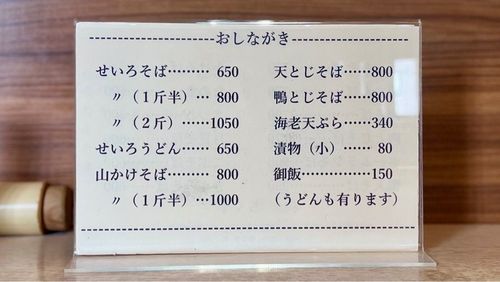 おしながき
せいろそば………650
〃（１斤半）…800
〃（２斤）……1050
せいろうどん……650
山かけそば………800
〃（１斤半）…1000
天とじそば……800
鴨とじそば……800
海老天ぷら……340
漬物（小）……80
御飯………………150
（うどんも有ります）